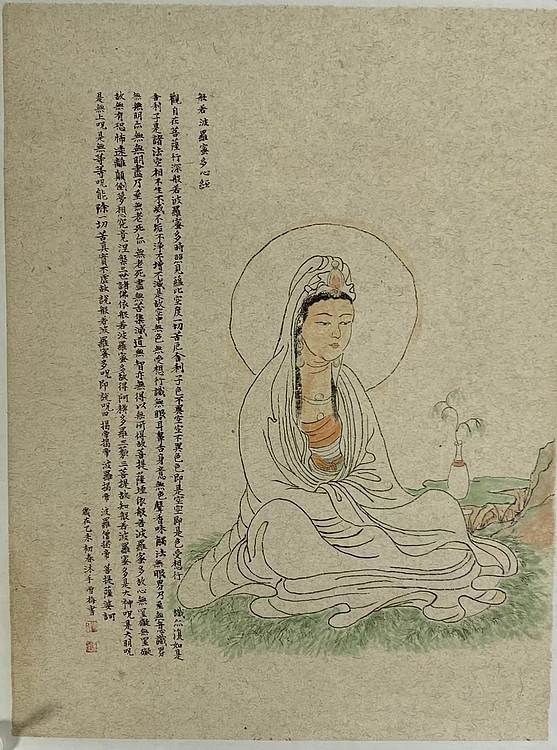 般若波羅蜜多心經
觀自在菩薩行深般若波羅蜜多時照見蘊皆空度一切苦厄舍利子色不異空空不異色色即是空空即是色受想行 識亦復如是
舍利子是諸法空相不生不滅不垢不淨不增不減是故空中無色無受想行識無眼耳鼻舌身意無色聲香味觸法無眼界乃至無意識界
無無明亦無無明盡乃至無老死亦無老死盡無苦集滅道無智亦無得以無所得故菩提薩埵依般若波羅蜜多故心無罣礙無罣礙
故無有恐怖遠離顛倒夢想究竟涅槃三世諸佛依般若波羅蜜多故得阿耨多羅三藐三菩提故知般若波羅蜜多是大神呪是大明呪
是無上呪是無等等呪能除一切苦真實不虛故說般若波羅蜜多呪即說呪曰 揭帝揭帝 波羅揭帝 波羅僧揭帝 菩提薩婆訶
歲在乙未初春沐手 梅書